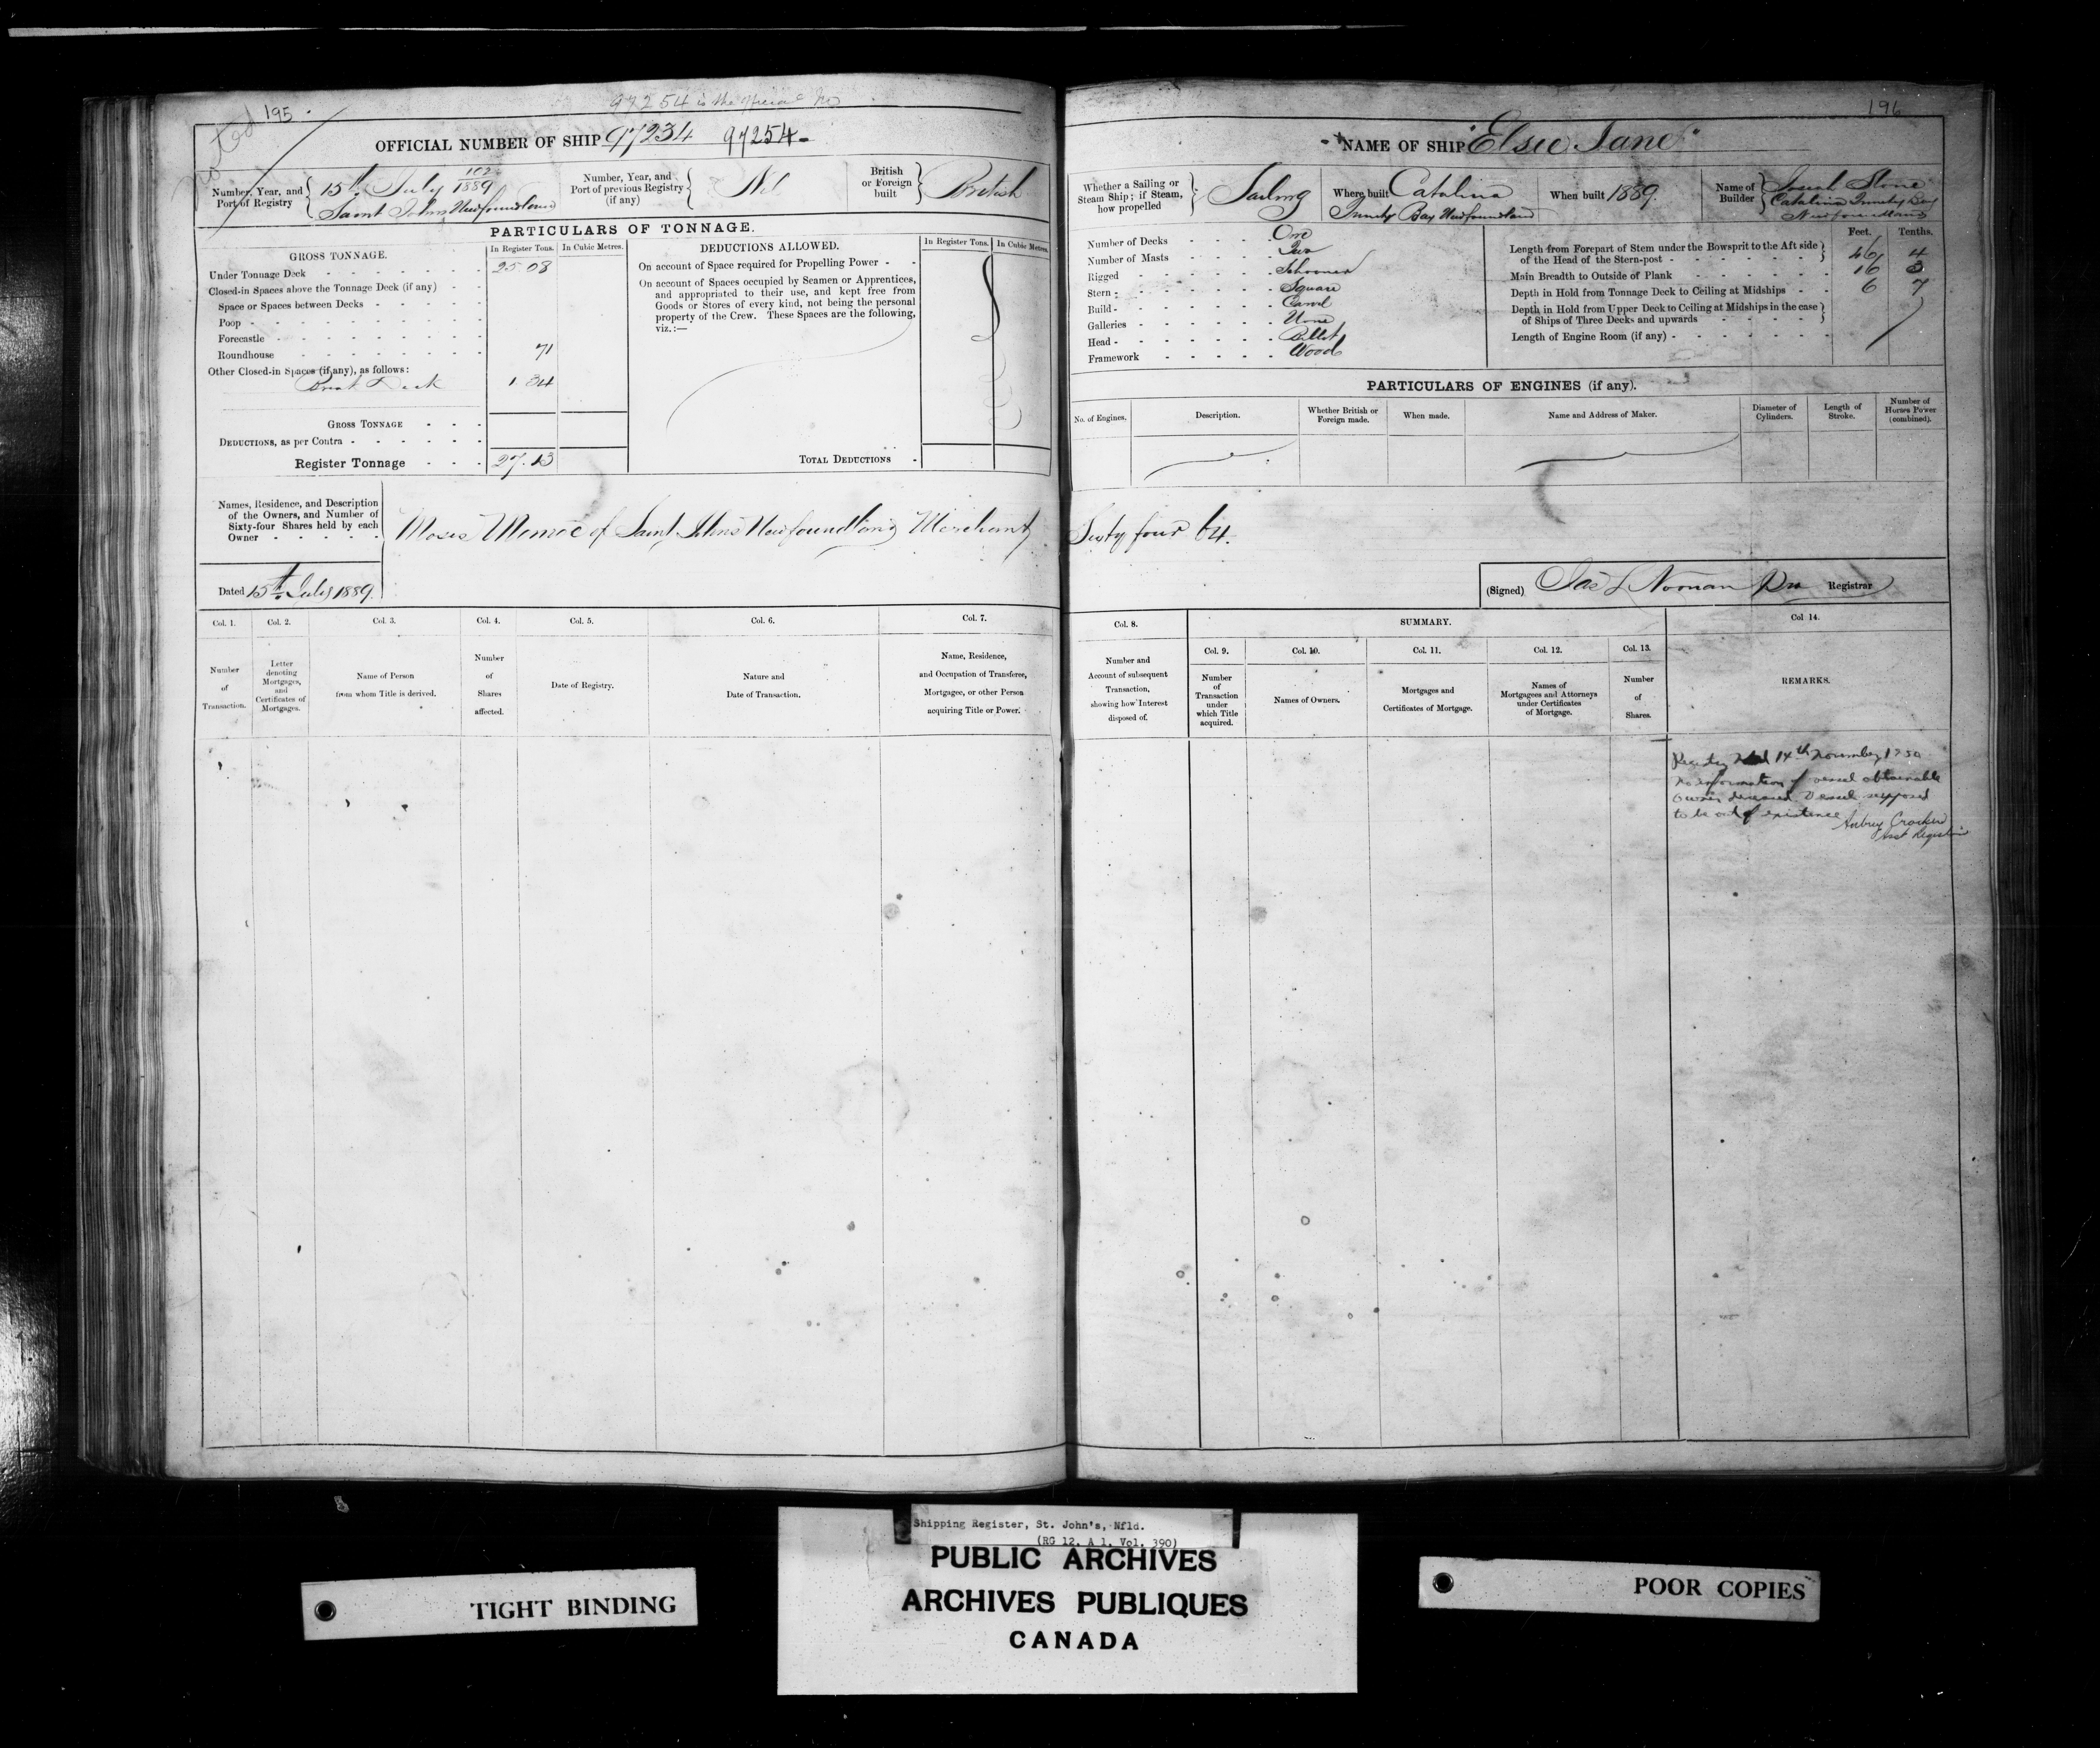 195
97254 is the official No
noted
OFFICIAL NUMBER OF SHIP 97234 97254
Number, Year, and Port of Registry
102/1889
15th July
Saint Johns Newfoundland
Number, Year, and Port of previous Registry (if any)
Nil
British or Foreign built
British
PARTICULARS OF TONNAGE.
GROSS TONNAGE.
In Register Tons. In Cubic Metres.
Under Tonnage Deck 25 08
Closed-in Spaces above the Tonnage Deck (if any)
Space or Spaces between Decks
Poop
Forecastle
Roundhouse 71
Other Closed-in Spaces (if any), as follows:
Deck 1 34
GROSS TONNAGE
DEDUCTIONS, as per Contra
Register Tonnage 27.13
DEDUCTIONS ALLOWED.
In Register Tons. In Cubic Metres.
On account of Space required for Propelling Power
On account of Spaces occupied by Seamen or Apprentices,
and appropriated to their use, and kept free from
Goods or Stores of every kind, not being the personal
property of the Crew. These Spaces are the following,
viz.:—
TOTAL DEDUCTIONS
Names, Residence, and Description
of the Owners, and Number of
Sixty-four Shares held by each
Owner
Moses Monroe of Saint Johns Newfoundland Merchant
Dated 15th July 1889.
Col. 1. Col. 2. Col. 3. Col. 4. Col. 5. Col. 6. Col. 7.
Number of Transaction.
Letter denoting Mortgages, and Certificates of Mortgages.
Name of Person from whom Title is derived.
Number of Shares affected.
Date of Registry.
Nature and Date of Transaction.
Name, Residence, and Occupation of Transferee, Mortgagee, or other Person acquiring Title or Power.
196
NAME OF SHIP "Elsie Jane"
Whether a Sailing or Steam Ship; if Steam, how propelled
Sailing
Where built Catalina
Trinity Bay Newfoundland
When built 1889.
Name of Builder
Josiah Stone
Catalina Trinity Bay
Newfoundland
Number of Decks One
Number of Masts Two
Rigged Schooner
Stern Square
Build Carvel
Galleries None
Head Billet
Framework Wood
Feet. Tenths.
Length from Forepart of Stem under the Bowsprit to the Aft side of the Head of the Stern-post 46 4
Main Breadth to Outside of Plank 16 3
Depth in Hold from Tonnage Deck to Ceiling at Midships 6 7
Depth in Hold from Upper Deck to Ceiling at Midships in the case of Ships of Three Decks and upwards
Length of Engine Room (if any)
PARTICULARS OF ENGINES (if any).
No. of Engines.
Description.
Whether British or Foreign made.
When made.
Name and Address of Maker.
Diameter of Cylinders.
Length of Stroke.
Number of Horses Power (combined).
Sixty four 64.
(Signed) Jas L Noonan Registrar
Col. 8.
SUMMARY.
Col 14.
Col. 9. Col. 10. Col. 11. Col. 12. Col. 13.
Number and Account of subsequent Transaction, showing how Interest disposed of.
Number of Transaction under which Title acquired.
Names of Owners.
Mortgages and Certificates of Mortgage.
Names of Mortgagees and Attorneys under Certificates of Mortgage.
Number of Shares.
REMARKS.
Registry closed 14th November, 1950
No information of vessel obtainable
Owner deceased. Vessel supposed
to be out of existence
Aubrey Crocker
Asst Registrar
Shipping Register, St. John's, Nfld.
(RG 12, A 1, Vol. 390)
PUBLIC ARCHIVES
ARCHIVES PUBLIQUES
CANADA
TIGHT BINDING
POOR COPIES